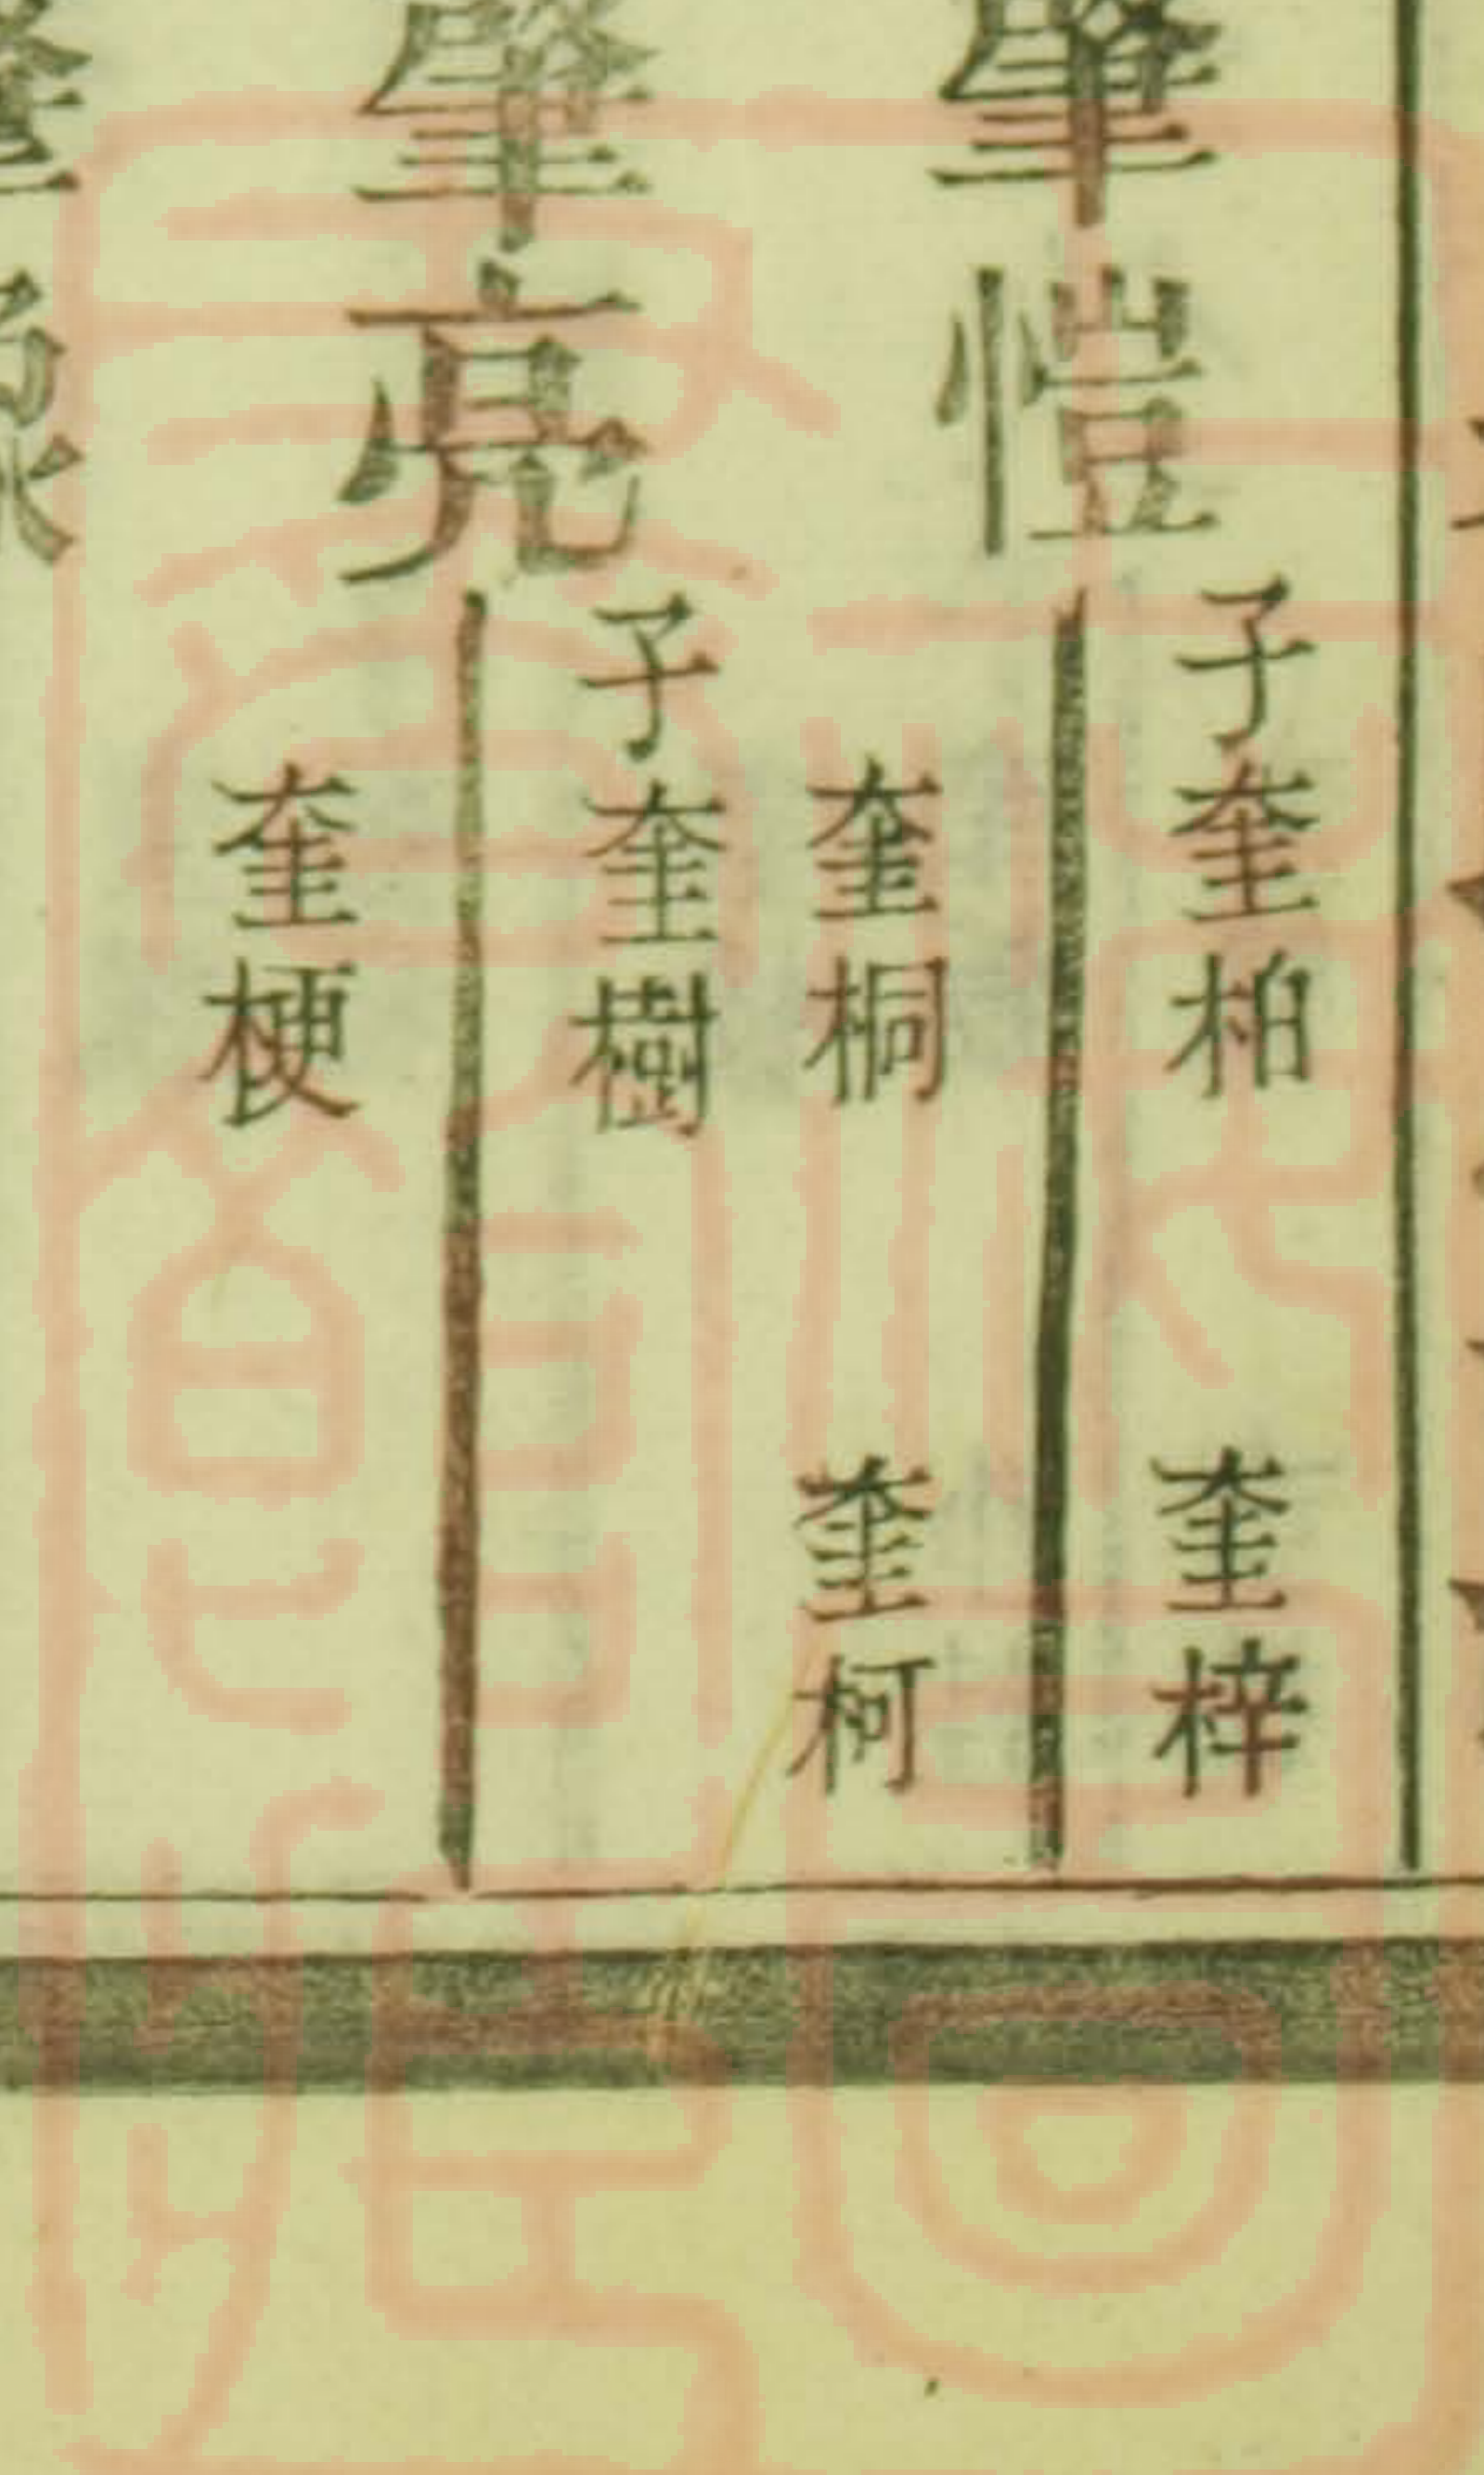 肇愷
子奎柏 奎梓
奎桐 奎柯
肇亮
子奎樹
奎梗